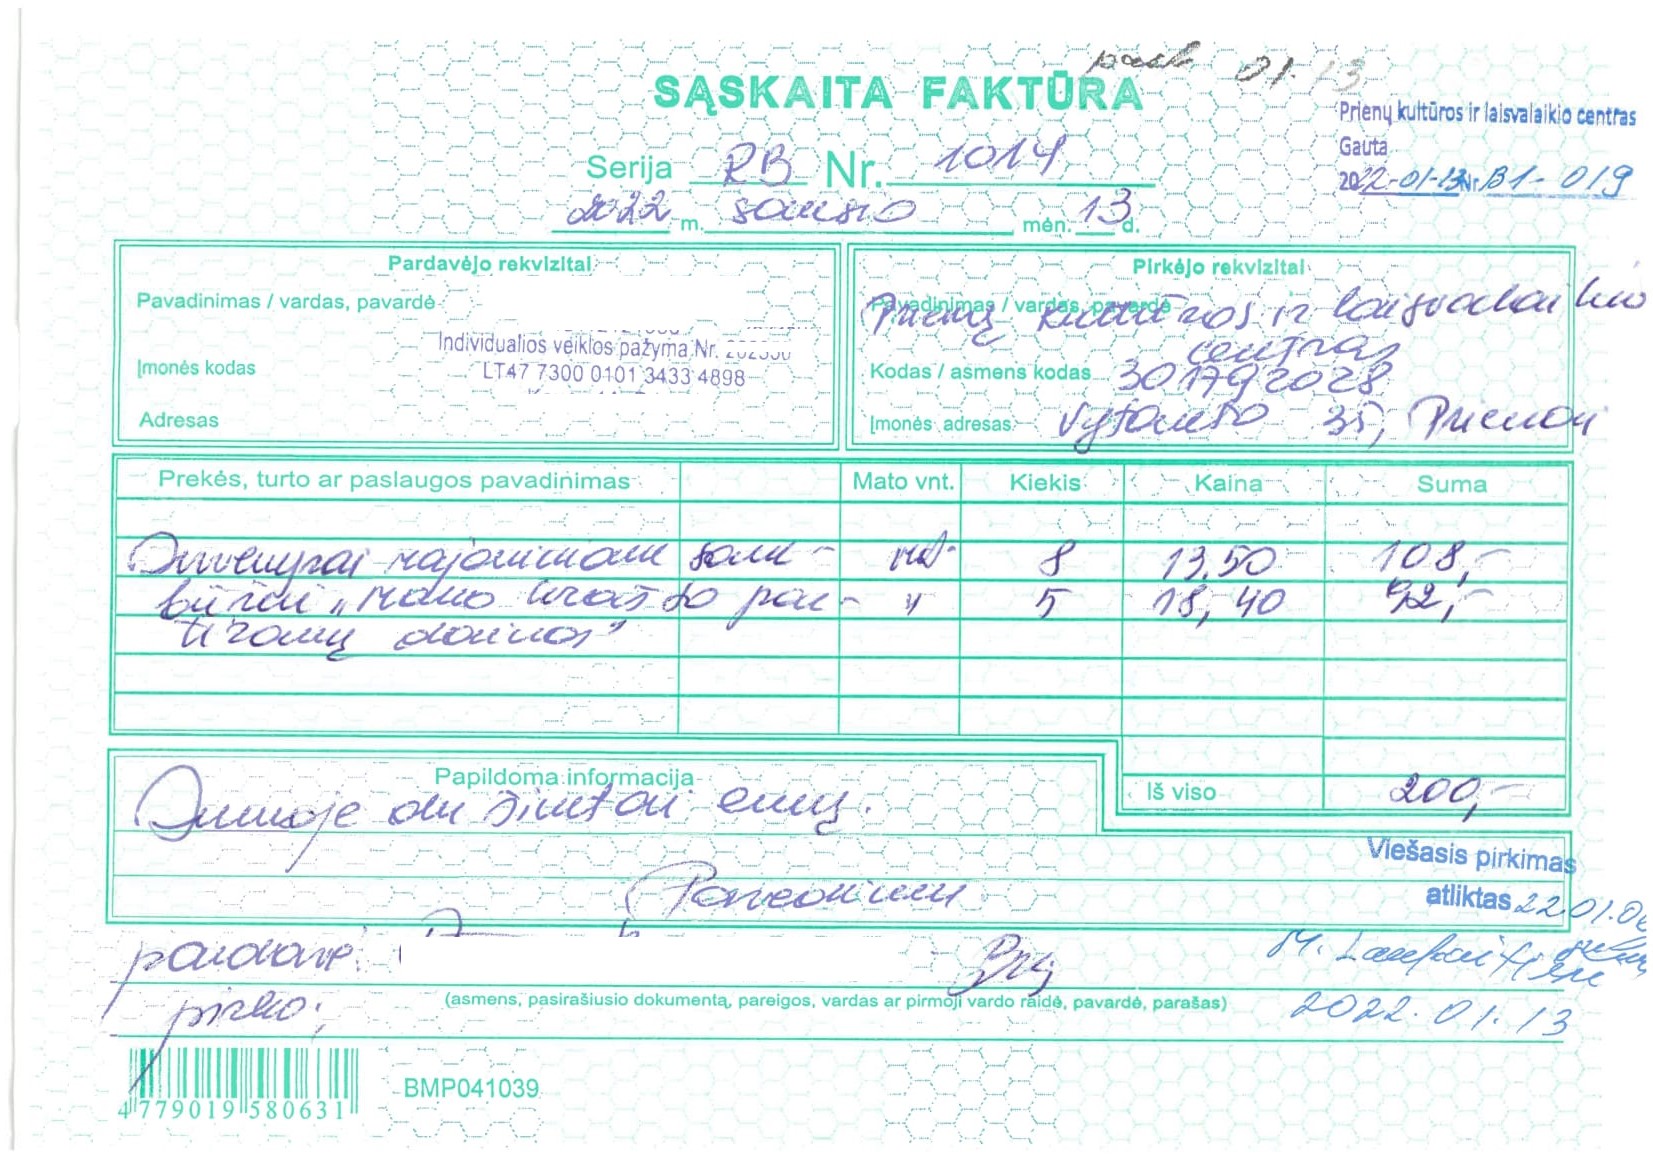 pask 01.13
SĄSKAITA FAKTŪRA
Prienų kultūros ir laisvalaikio centras
Gauta
2022-01-13 Nr. B1-019
Serija RB Nr. 1014
2022 m. sausio mėn. 13 d.
Pardavėjo rekvizitai
Pavadinimas / vardas, pavardė
Individualios veiklos pažyma Nr.
Įmonės kodas
LT47 7300 0101 3433 4898
Adresas
Pirkėjo rekvizitai
Pavadinimas / vardas, pavardė
Prienų kultūros ir laisvalaikio
centras
Kodas / asmens kodas 301792028
Įmonės adresas Vytauto 35, Prienai
Prekės, turto ar paslaugos pavadinimas Mato vnt. Kiekis Kaina Suma
Suvenyrai rajoniniam sam- vnt. 8 13,50 108,-
būriui „Mano krašto pa- " 5 18,40 92,-
tiramų dainos"
Iš viso 200,-
Papildoma informacija
Sumoje du šimtai eurų.
Pavedimu
Viešasis pirkimas
atliktas 22.01.
pardavė:
M.
pirko:
(asmens, pasirašiusio dokumentą, pareigos, vardas ar pirmoji vardo raidė, pavardė, parašas)
2022.01.13
4 779019 580631
BMP041039